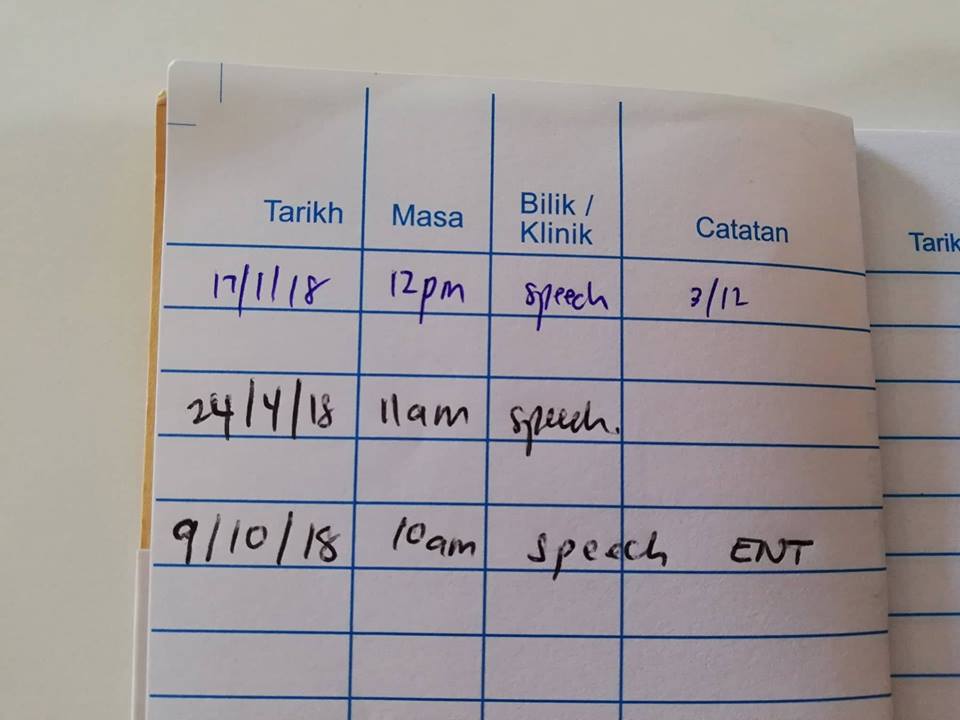 Tarikh Masa Bilik / Klinik Catatan Tarik
17/1/18 12pm speech 3/12
24/4/18 11am speech.
9/10/18 10am speech ENT